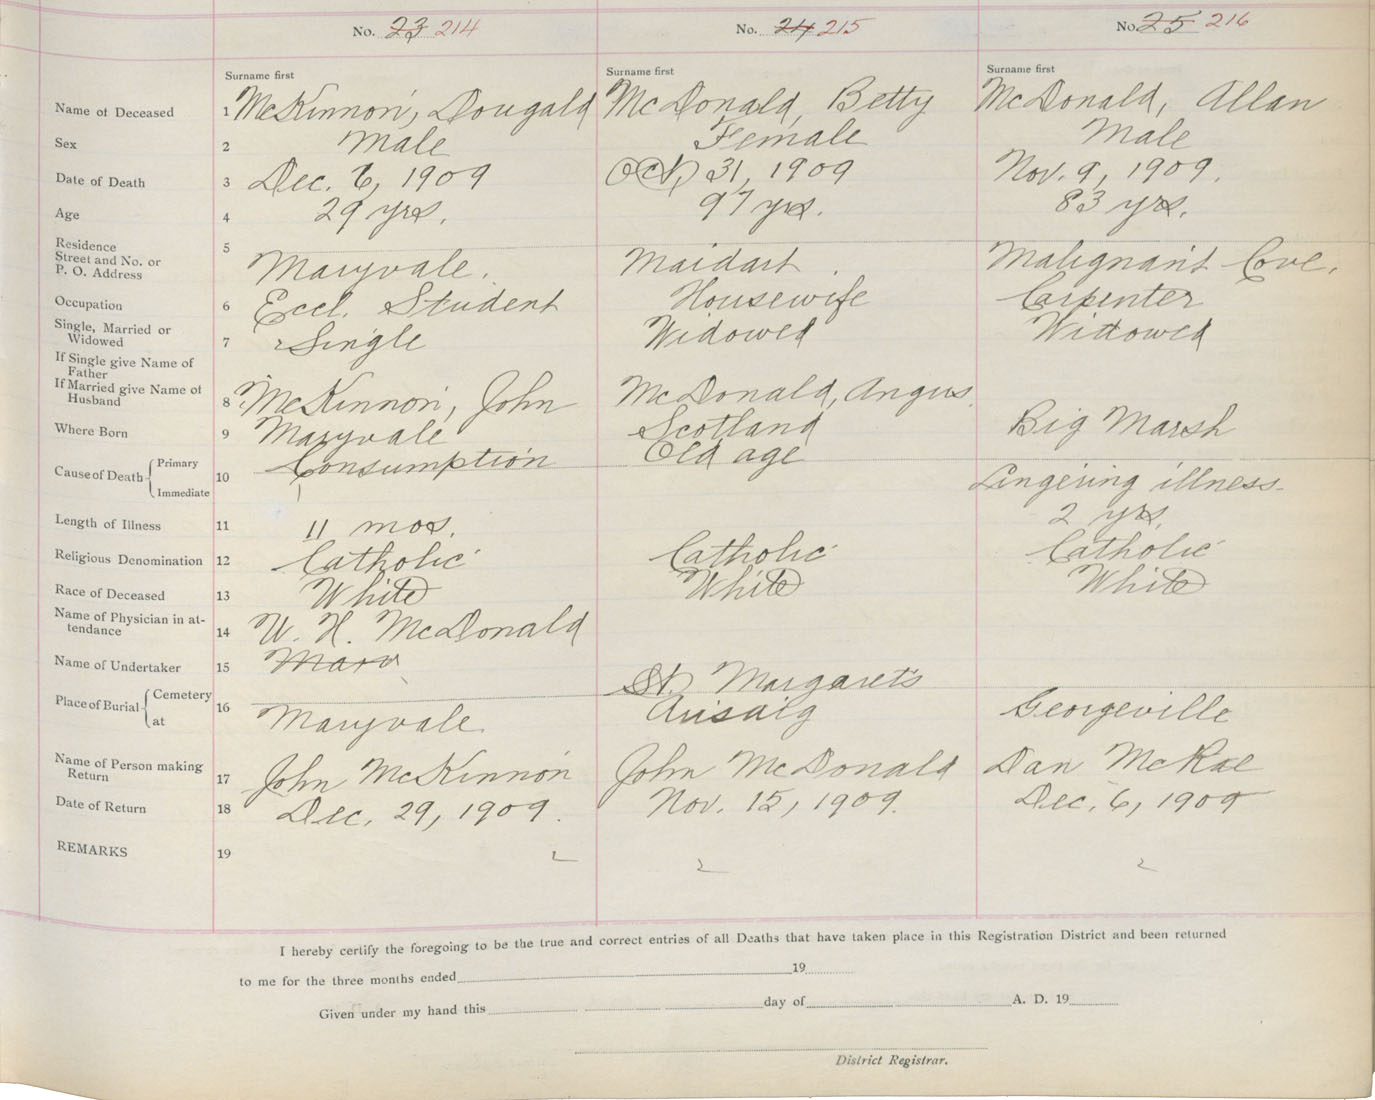 No. 23 214 No. 24 215 No. 25 216
Surname first Surname first Surname first
Name of Deceased 1 McKinnon, Dougald McDonald, Betty McDonald, Allan
Sex 2 Male Female Male
Date of Death 3 Dec. 6, 1909 Oct. 31, 1909 Nov. 9, 1909.
Age 4 29 yrs. 97 yrs. 83 yrs.
Residence 5
Street and No. or
P. O. Address Maryvale. Maidart. Malignant Cove.
Occupation 6 Eccl. Student Housewife Carpenter
Single, Married or
Widowed 7 Single Widowed Widowed
If Single give Name of
Father
If Married give Name of
Husband 8 McKinnon, John McDonald, Angus.
Where Born 9 Maryvale Scotland Big Marsh
Cause of Death Primary Consumption Old age
10 Lingering illness
Immediate
Length of Illness 11 11 mos. 2 yrs.
Religious Denomination 12 Catholic Catholic Catholic
Race of Deceased 13 White White White
Name of Physician in at-
tendance 14 W. H. McDonald
Name of Undertaker 15 Mary
Place of Burial Cemetery St. Margaret's
16
at Maryvale. Arisaig Georgeville
Name of Person making
Return 17 John McKinnon John McDonald Dan McRae
Date of Return 18 Dec. 29, 1909. Nov. 15, 1909. Dec. 6, 1909
REMARKS 19
I hereby certify the foregoing to be the true and correct entries of all Deaths that have taken place in this Registration District and been returned
to me for the three months ended 19
Given under my hand this day of A. D. 19
District Registrar.